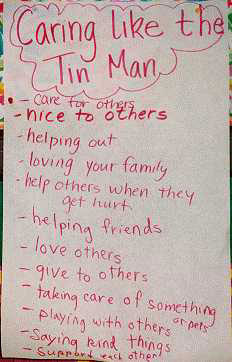 Caring like the
Tin Man
- care for others
- nice to others
- helping out
- loving your family
- help others when they
get hurt
- helping friends
- love others
- give to others
- taking care of something
or pets
- playing with others
- Saying kind things
- Support each other